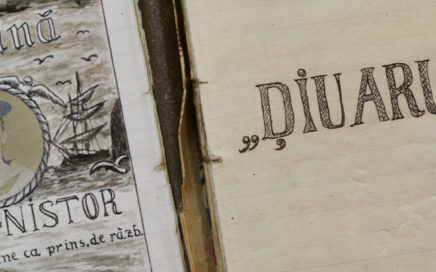 ană
-NISTOR
ne ca prins, de răzb.
„ḐIUARU